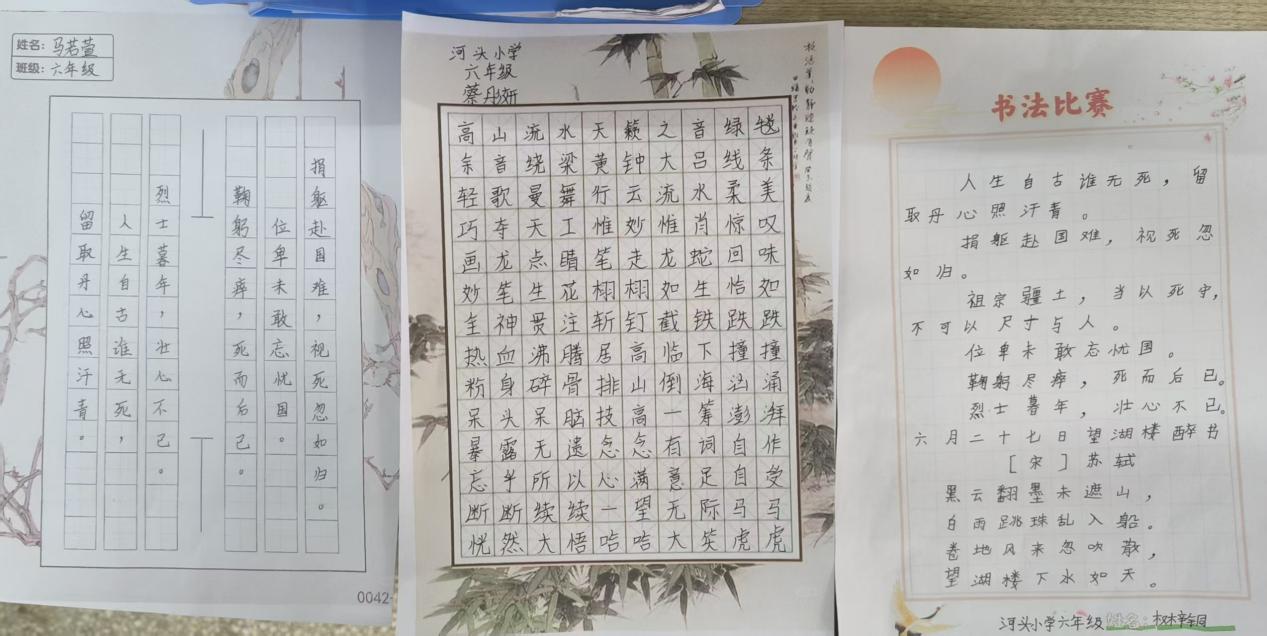 姓名：马若萱
班级：六年级
捐躯赴国难，视死忽如归。
位卑未敢忘忧国。
鞠躬尽瘁，死而后已。
烈士暮年，壮心不已。
人生自古谁无死，
留取丹心照汗青。
0042-
河头小学
六年级
蔡彤妍
高山流水天籁之音绿毯
余音绕梁黄钟大吕线条
轻歌曼舞行云流水柔美
巧夺天工惟妙惟肖惊叹
画龙点睛笔走龙蛇回味
妙笔生花栩栩如生恰如
全神贯注斩钉截铁跌跌
热血沸腾居高临下撞撞
粉身碎骨排山倒海汹涌
呆头呆脑技高一筹澎湃
暴露无遗念念有词自作
忘乎所以心满意足自受
断断续续一望无际马马
恍然大悟哈哈大笑虎虎
书法比赛
人生自古谁无死，留
取丹心照汗青。
捐躯赴国难，视死忽
如归。
祖宗疆土，当以死守，
不可以尺寸与人。
位卑未敢忘忧国。
鞠躬尽瘁，死而后已。
烈士暮年，壮心不已。
六月二十七日望湖楼醉书
[宋]苏轼
黑云翻墨未遮山，
白雨跳珠乱入船。
卷地风来忽吹散，
望湖楼下水如天。
河头小学六年级 姓名：